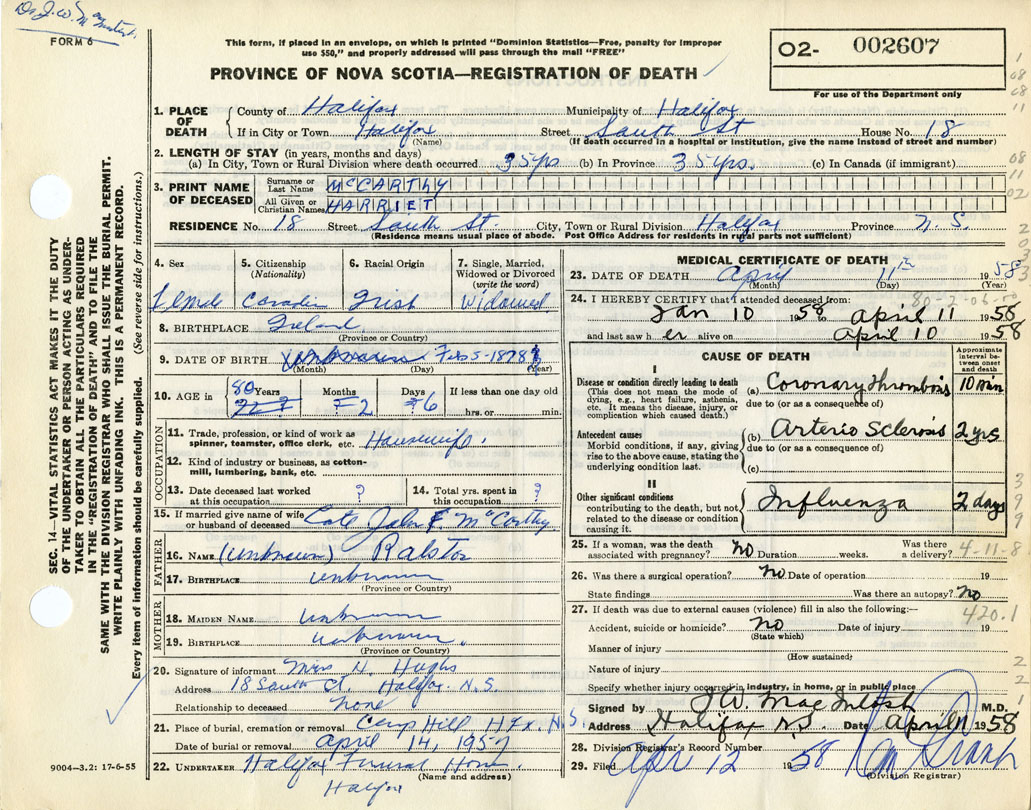 Dr J. W. MacIntosh
FORM 6
This form, if placed in an envelope, on which is printed "Dominion Statistics—Free, penalty for improper
use $50," and properly addressed will pass through the mail "FREE"
PROVINCE OF NOVA SCOTIA—REGISTRATION OF DEATH
02- 002607
For use of the Department only
1. PLACE OF DEATH County of Halifax Municipality of Halifax
If in City or Town Halifax Street South St House No. 18
(Name) (If death occurred in a hospital or institution, give the name instead of street and number)
2. LENGTH OF STAY (in years, months and days)
(a) In City, Town or Rural Division where death occurred 35 yrs (b) In Province 35 yrs. (c) In Canada (if immigrant)
3. PRINT NAME OF DECEASED Surname or Last Name MCCARTHY
All Given or Christian Names HARRIET
RESIDENCE No. 18 Street South St. City, Town or Rural Division Halifax Province N.S.
(Residence means usual place of abode. Post Office Address for residents in rural parts not sufficient)
4. Sex 5. Citizenship (Nationality) 6. Racial Origin 7. Single, Married, Widowed or Divorced (write the word)
Female Canadian Irish Widowed
8. BIRTHPLACE Ireland
(Province or Country)
9. DATE OF BIRTH Unknown Feb 5-1878
(Month) (Day) (Year)
10. AGE in 80 Years Months 2 Days 6 If less than one day old
hrs. or min.
OCCUPATION
11. Trade, profession, or kind of work as spinner, teamster, office clerk, etc. Housewife.
12. Kind of industry or business, as cotton-mill, lumbering, bank, etc.
13. Date deceased last worked at this occupation ? 14. Total yrs. spent in this occupation ?
15. If married give name of wife or husband of deceased Late John F McCarthy
FATHER
16. NAME (unknown) Ralston
17. BIRTHPLACE unknown
(Province or Country)
MOTHER
18. MAIDEN NAME unknown
19. BIRTHPLACE unknown.
(Province or Country)
20. Signature of informant Miss H. Hughs
Address 18 South St. Halifax N.S.
Relationship to deceased None
21. Place of burial, cremation or removal Camp Hill Hfx. N.S.
Date of burial or removal April 14, 1957
22. UNDERTAKER Halifax Funeral Home
(Name and address)
Halifax
9004—3.2: 17-6-55
SEC. 14—VITAL STATISTICS ACT MAKES IT THE DUTY
OF THE UNDERTAKER OR PERSON ACTING AS UNDER-
TAKER TO OBTAIN ALL THE PARTICULARS REQUIRED
IN THE "REGISTRATION OF DEATH" AND TO FILE THE
SAME WITH THE DIVISION REGISTRAR WHO SHALL ISSUE THE BURIAL PERMIT.
WRITE PLAINLY WITH UNFADING INK. THIS IS A PERMANENT RECORD.
Every item of information should be carefully supplied. (See reverse side for instructions.)
MEDICAL CERTIFICATE OF DEATH
23. DATE OF DEATH April 11th 1958
(Month) (Day) (Year)
24. I HEREBY CERTIFY that I attended deceased from: 80-2-06-00
Jan 10 1958 to April 11 1958
and last saw h er alive on April 10 1958
CAUSE OF DEATH
Approximate interval between onset and death
I
Disease or condition directly leading to death
(This does not mean the mode of dying, e.g., heart failure, asthenia, etc. It means the disease, injury, or complication which caused death.)
(a) Coronary Thrombosis 10 min
due to (or as a consequence of)
Antecedent causes
Morbid conditions, if any, giving rise to the above cause, stating the underlying condition last.
(b) Arterio Sclerosis 2 yrs
due to (or as a consequence of)
(c)
II
Other significant conditions
contributing to the death, but not related to the disease or condition causing it.
Influenza 2 days
25. If a woman, was the death associated with pregnancy? No Duration weeks. Was there a delivery? 4-11-8
26. Was there a surgical operation? No Date of operation 19
State findings Was there an autopsy? No
27. If death was due to external causes (violence) fill in also the following:— 420.1
Accident, suicide or homicide? No Date of injury 19
(State which)
Manner of injury
(How sustained)
Nature of injury
Specify whether injury occurred in industry, in home, or in public place
Signed by J W. MacIntosh M.D.
Address Halifax N.S. Date April 11 1958
28. Division Registrar's Record Number
29. Filed Apr 12 1958
(Division Registrar)